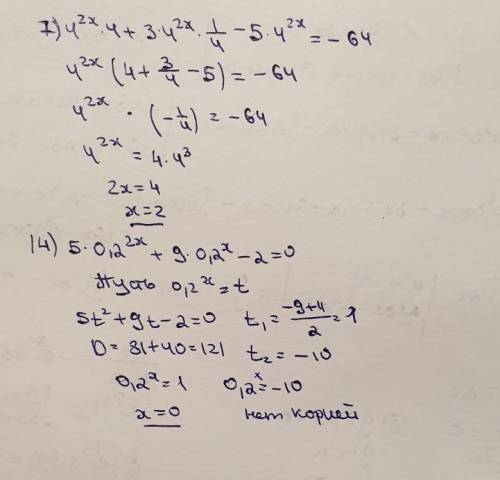 7) 4^{2x}·4 + 3·4^{2x}·\frac{1}{4} - 5·4^{2x} = - 64
4^{2x} (4 + \frac{3}{4} - 5) = - 64
4^{2x} · (-\frac{1}{4}) = - 64
4^{2x} = 4·4^3
2x = 4
x = 2
14) 5·0,2^{2x} + 9·0,2^x - 2 = 0
Пусть 0,2^x = t
5t^2 + 9t - 2 = 0 t_1 = \frac{-9+4}{2} = 1
D = 81 + 40 = 121 t_2 = - 10
0,2^x = 1 0,2^x = -10
x = 0 нет корней